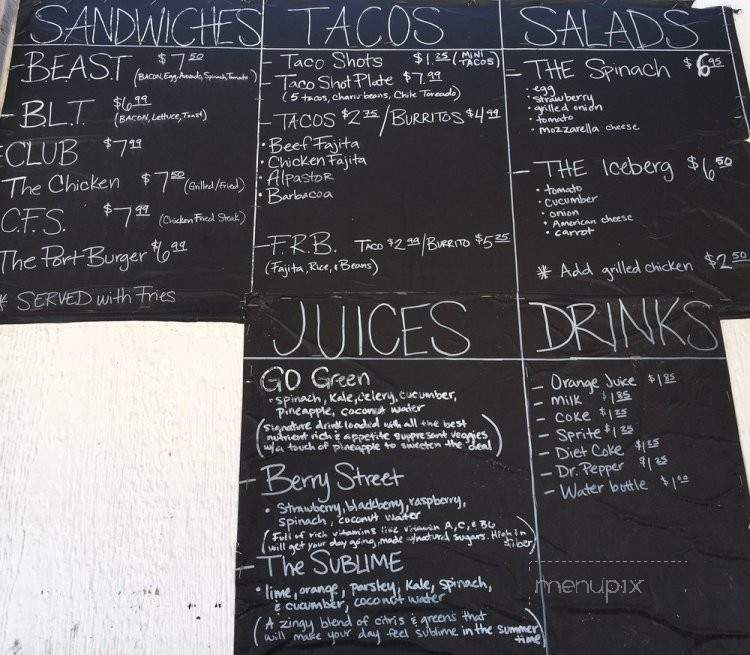 SANDWICHES
B.E.A.S.T $7.50
(BACON, Egg, Avocado, Spinach, Tomato)
B.L.T. $6.99
(BACON, Lettuce, Toast)
CLUB $7.99
The Chicken $7.50 (Grilled/Fried)
C.F.S. $7.99 (Chicken Fried Steak)
The Port Burger $6.99
* SERVED with Fries
TACOS
- Taco Shots $1.25 (MINI TACOS)
Taco Shot Plate $7.99
(5 tacos, charro beans, Chile Toreado)
- TACOS $2.75/BURRITOS $4.99
• Beef Fajita
• Chicken Fajita
• Alpastor
• Barbacoa
- F.R.B. TACO $2.99/BURRITO $5.25
(Fajita, Rice, & Beans)
SALADS
- THE Spinach $6.95
• egg
• strawberry
• grilled onion
• tomato
• mozzarella cheese
- THE Iceberg $6.50
• tomato
• cucumber
• onion
• American cheese
• carrot
* Add grilled chicken $2.50
JUICES
- GO Green
• spinach, Kale, celery, cucumber,
pineapple, coconut water
(signature drink loaded with all the best
nutrient rich & appetite suppresent veggies
w/a touch of pineapple to sweeten the deal)
- Berry Street
• Strawberry, blackberry, raspberry,
spinach, coconut water
(Full of rich vitamins like vitamin A, C, & B6
will get your day going, made w/natural sugars. High in
fiber)
- The SUBLIME
• lime, orange, parsley, Kale, spinach,
& cucumber, coconut water
(A zingy blend of citris & greens that
will make your day feel sublime in the summer
time)
DRINKS
- Orange Juice $1.85
- milk $1.85
- COKE $1.25
- Sprite $1.25
- Diet Coke $1.25
- Dr. Pepper $1.25
- Water bottle $1.00
menupix